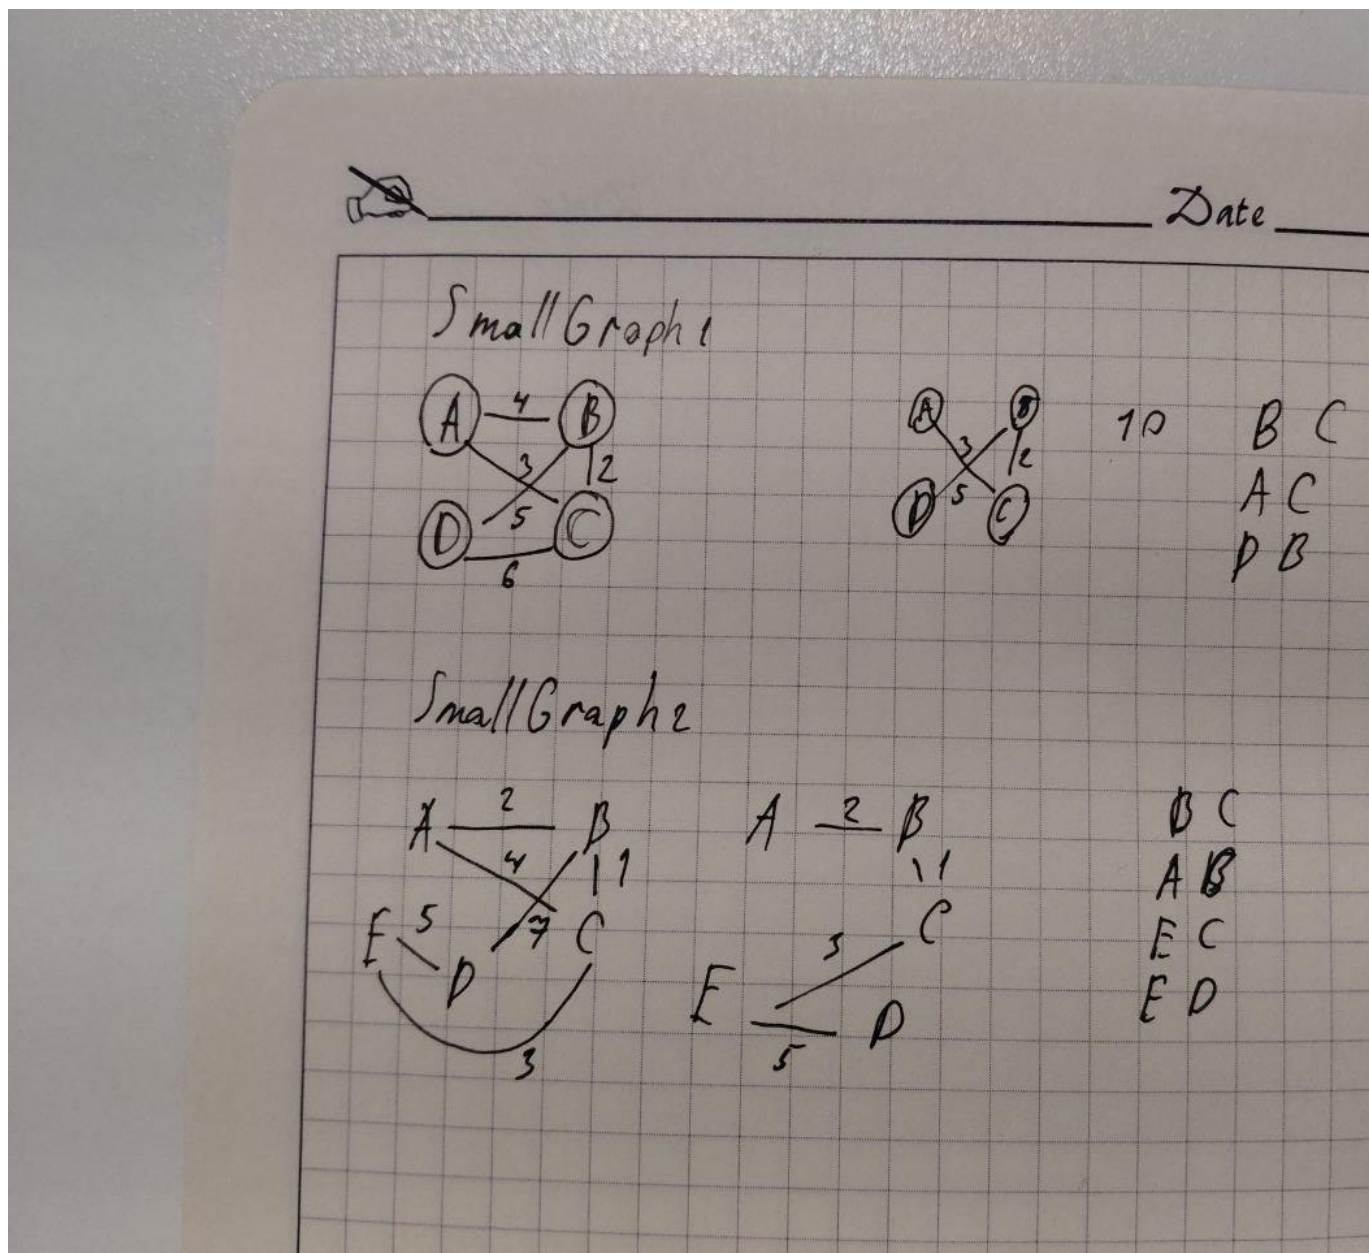 Date
SmallGraph1
A 4 B
3 2
5
D C
6
A B
3 2
5
D C
10
B C
A C
D B
SmallGraph2
A 2 B
4 1
7
E 5 D C
3
A 2 B
1
3 C
E D
5
B C
A B
E C
E D